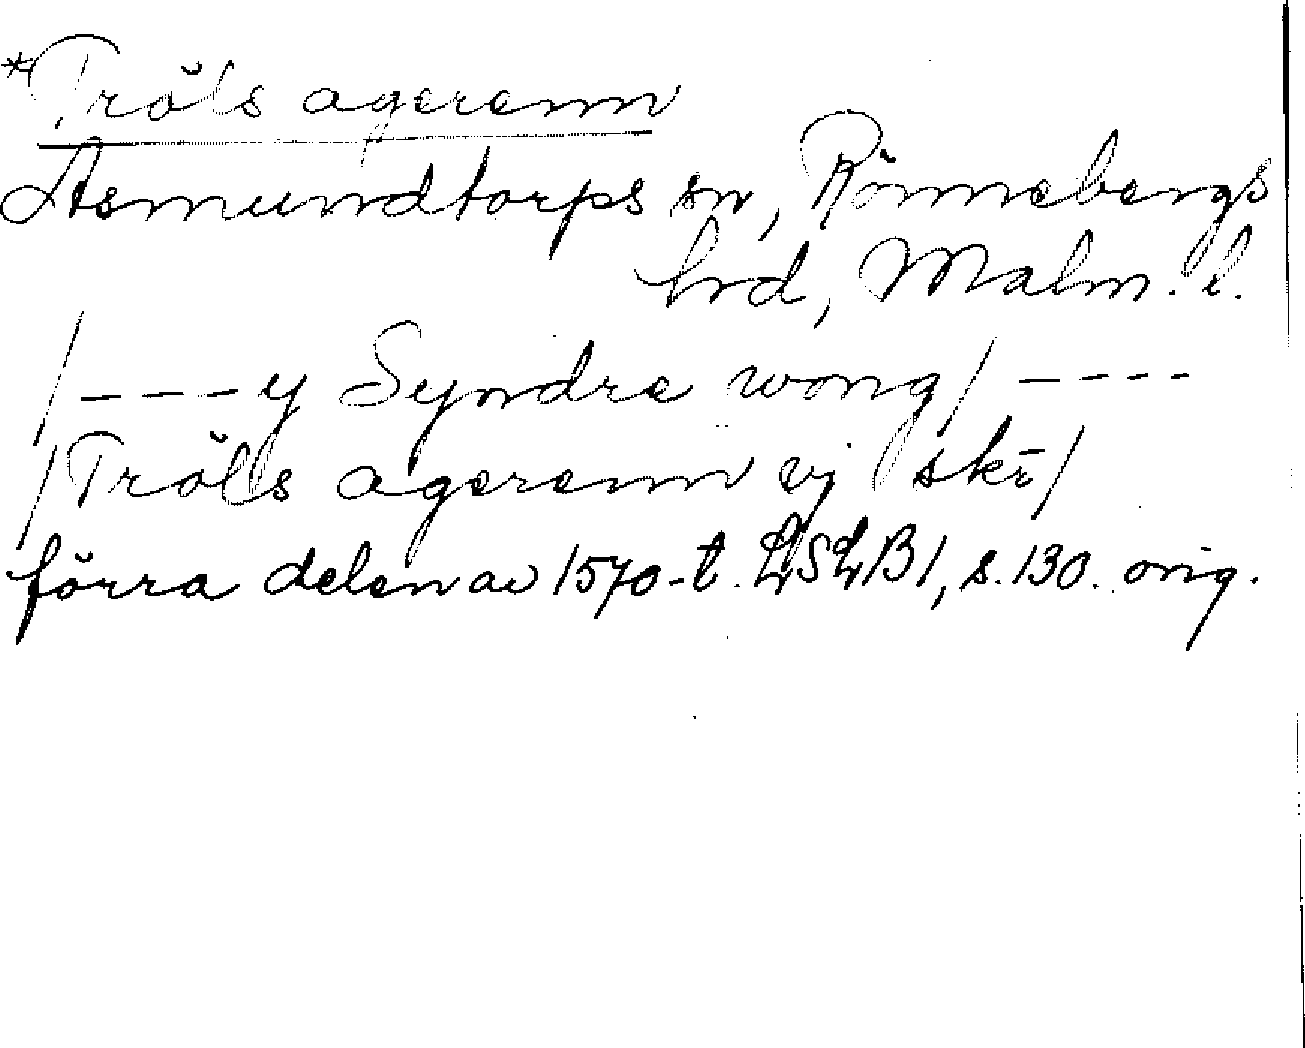 *Tröls agerenn
Asmundtorps sn, Rönnebergs
hrd, Malm. l.
/----y Syndre wong/ ----
/Tröls agerenn vj skr/
förra delen av 1570-t. LSLB1, s. 130. orig.